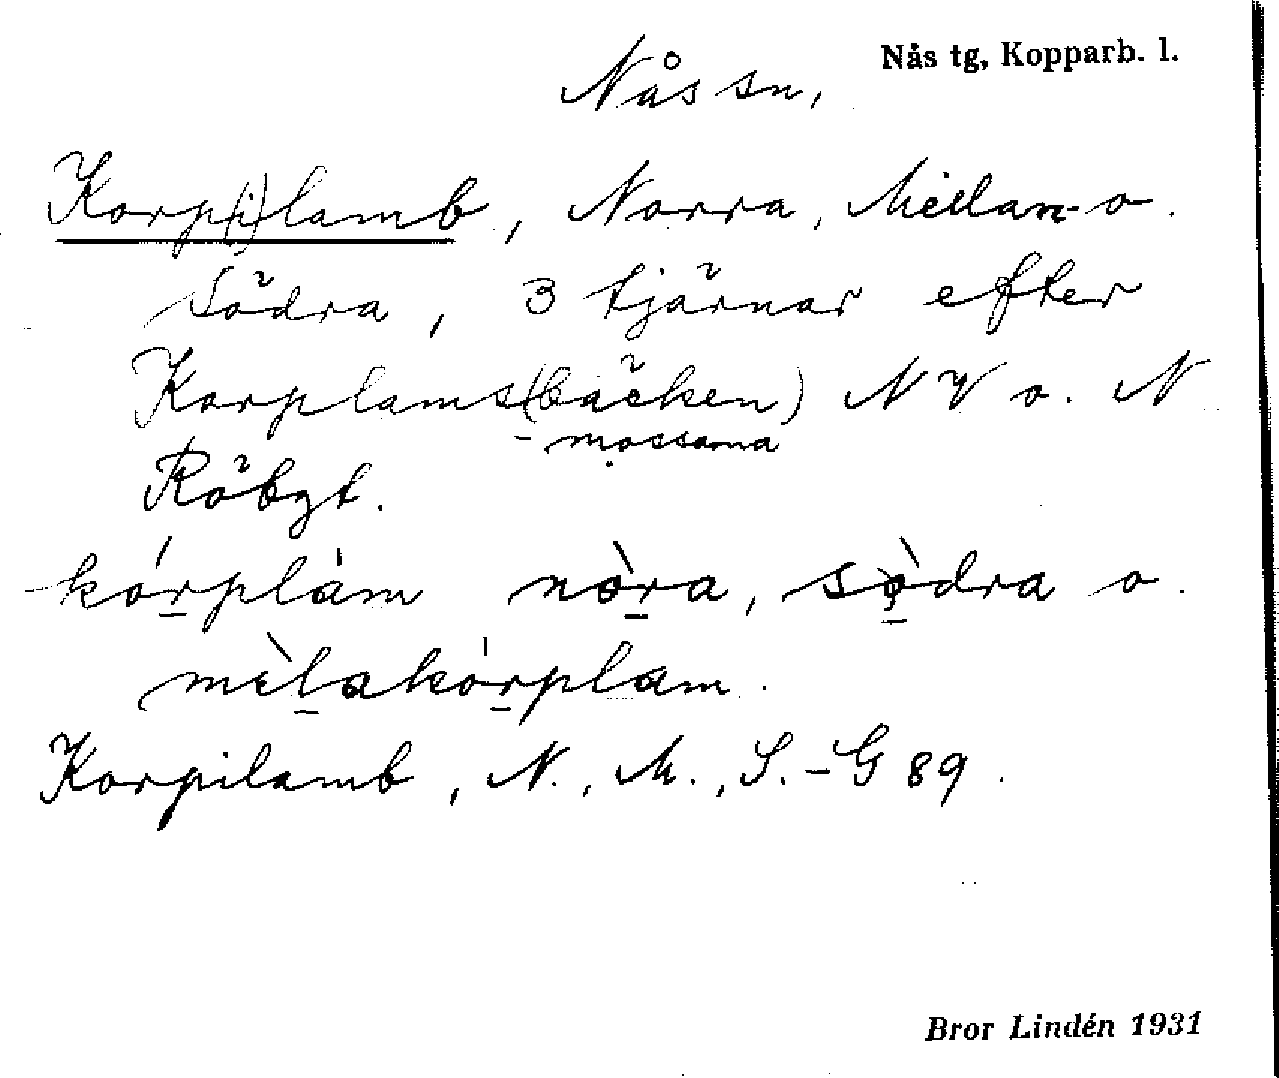 Nås tg, Kopparb. l.
Nås sn,
Korp(i)lamb, Norra, Mellan- o.
Södra, 3 tjärnar efter
Korplams(bäcken) NV o. N
-mossarna
Röbgt.
kórplàm nòra, sòdra o.
mèlakórplam.
Korpilamb, N., M., S. - G 89.
Bror Lindén 1931